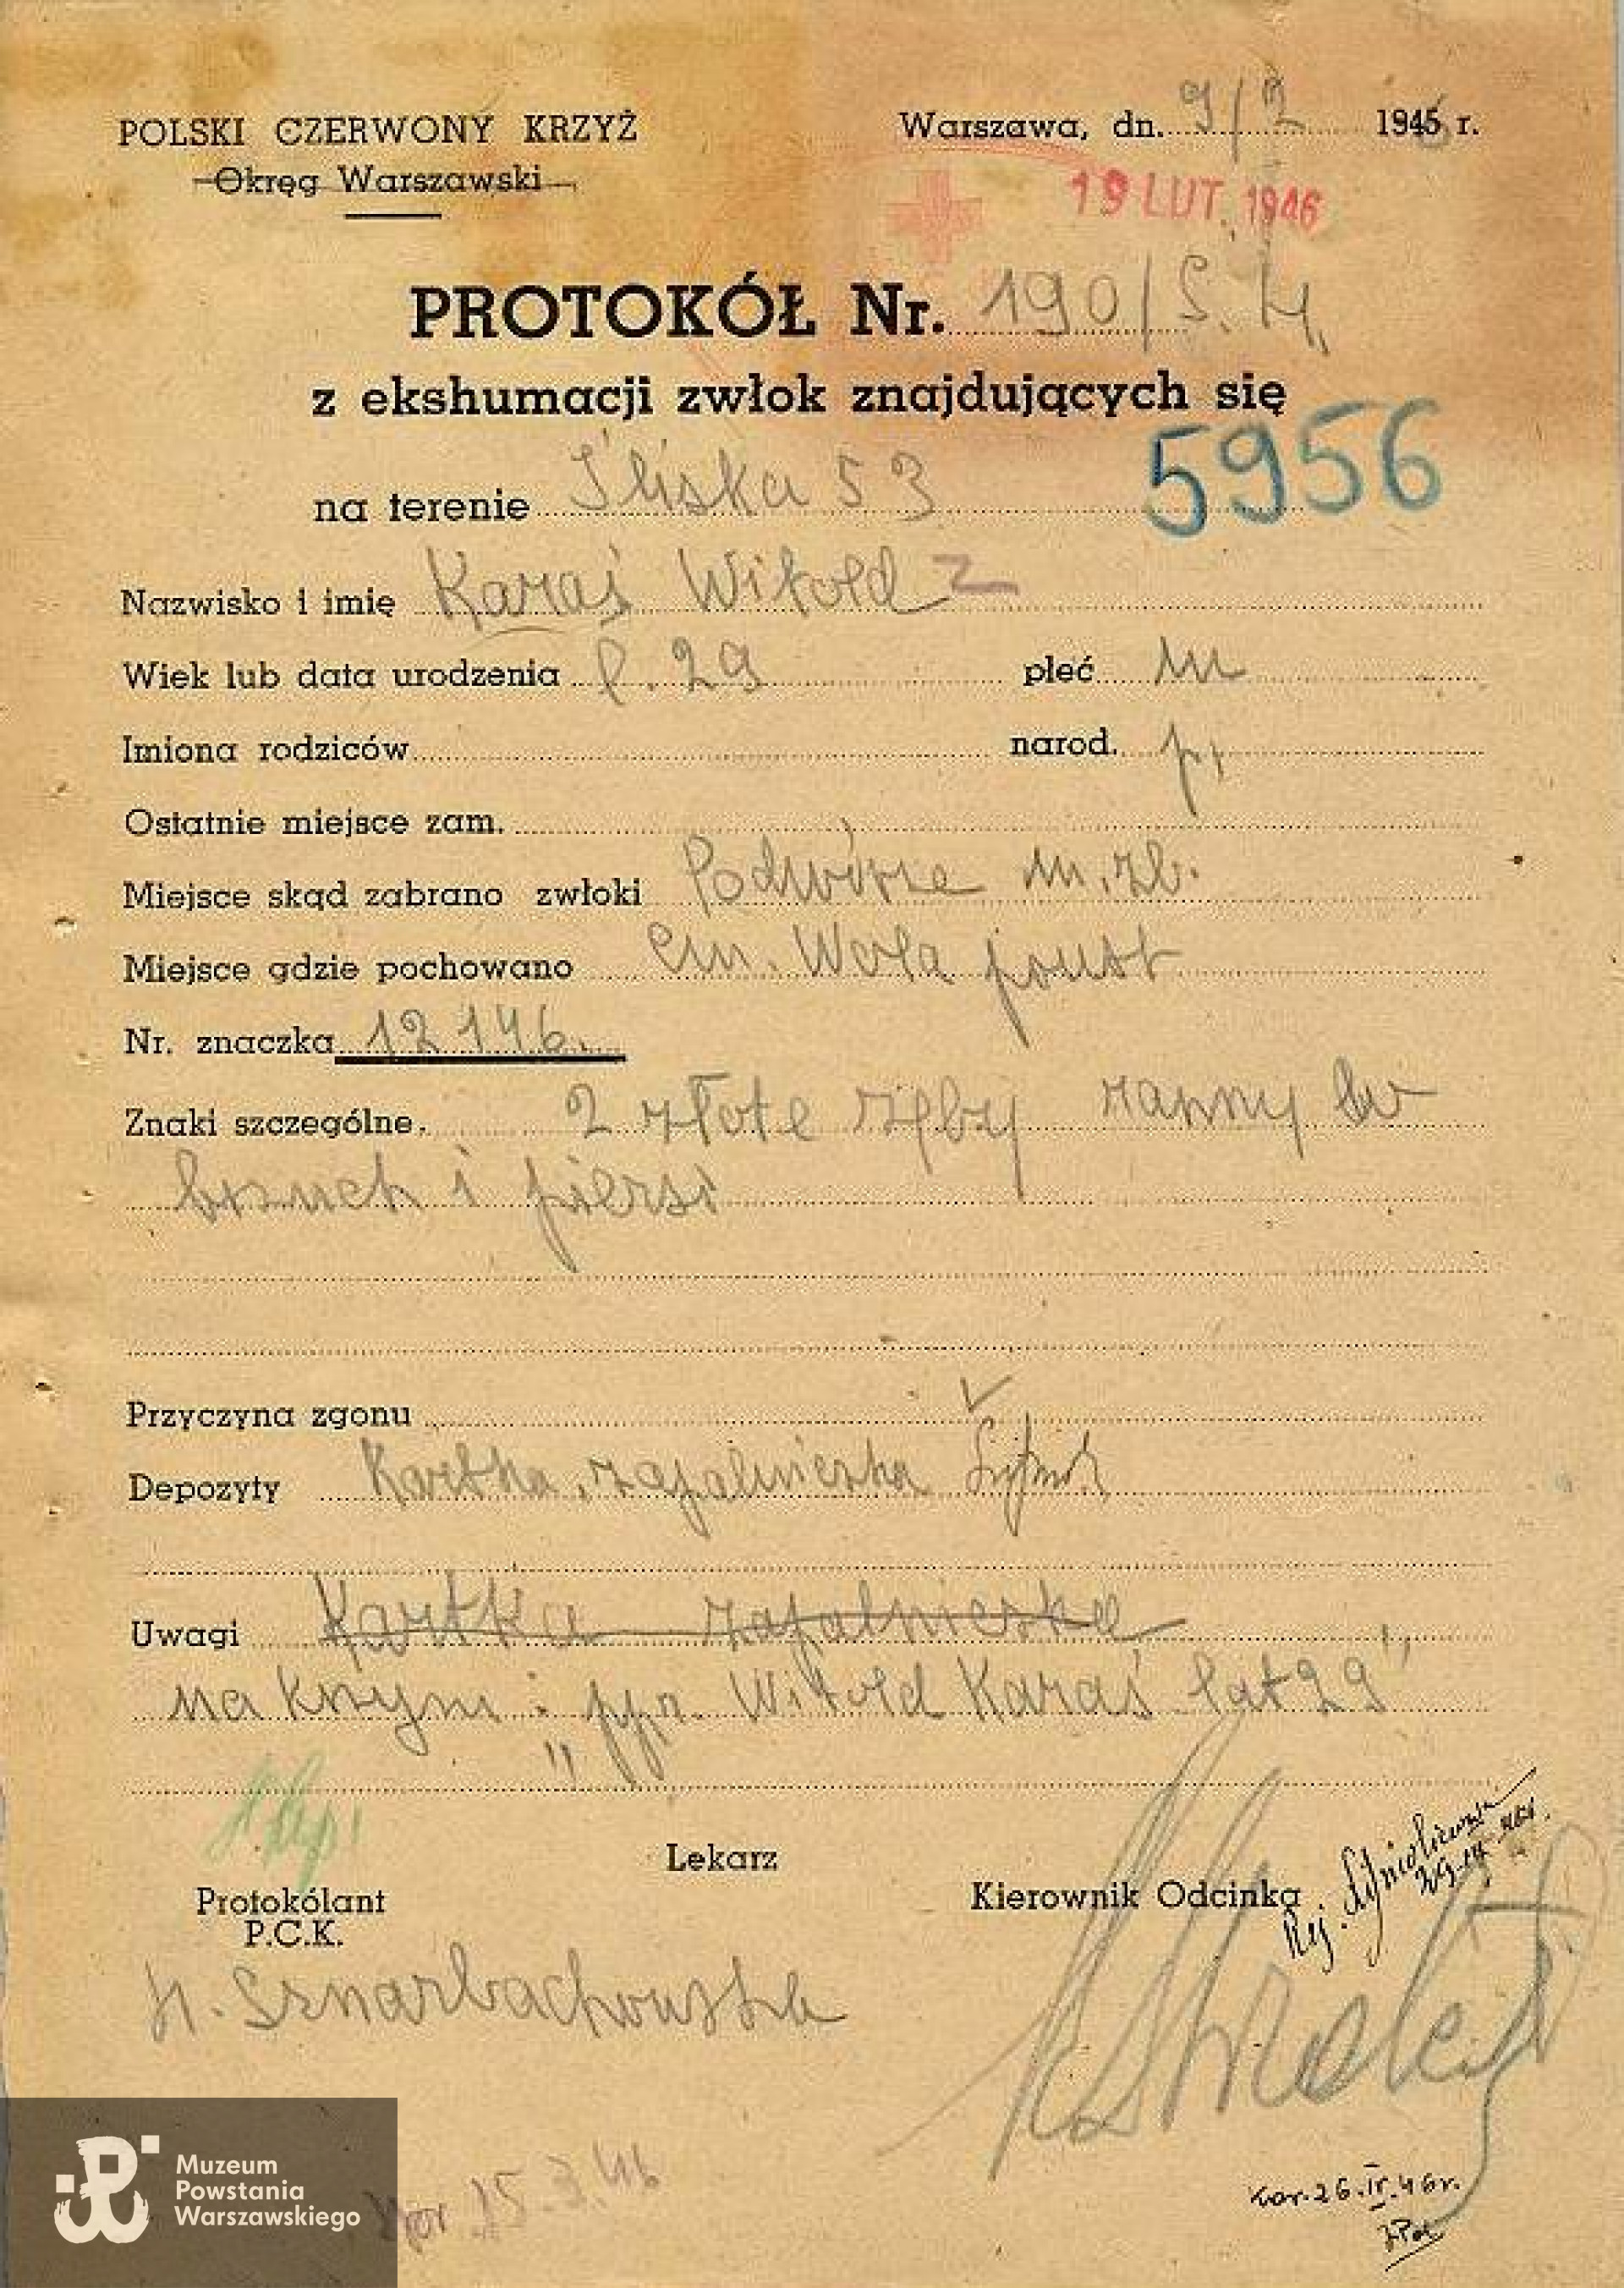 POLSKI CZERWONY KRZYŻ
Okręg Warszawski
Warszawa, dn. 9/2 1946 r.
19 LUT. 1946
PROTOKÓŁ Nr. 190/S.H.
z ekshumacji zwłok znajdujących się
na terenie Śliska 53
5956
Nazwisko i imię Karaś Witold
Wiek lub data urodzenia l. 29 płeć m
Imiona rodziców narod. p.
Ostatnie miejsce zam.
Miejsce skąd zabrano zwłoki Podwórze m. zb.
Miejsce gdzie pochowano Cm. Wola powst
Nr. znaczka 12146.
Znaki szczególne. 2 złote zęby ranny w
brzuch i piersi
Przyczyna zgonu
Depozyty Kartka, zapalniczka
Uwagi Kartka zapalniczka
na krzyżu: „ppr. Witold Karaś lat 29”
Protokólant
P.C.K.
Lekarz
Kierownik Odcinka
H. Sznarbachowska
15.3.46
26.IV.46r.
Muzeum
Powstania
Warszawskiego